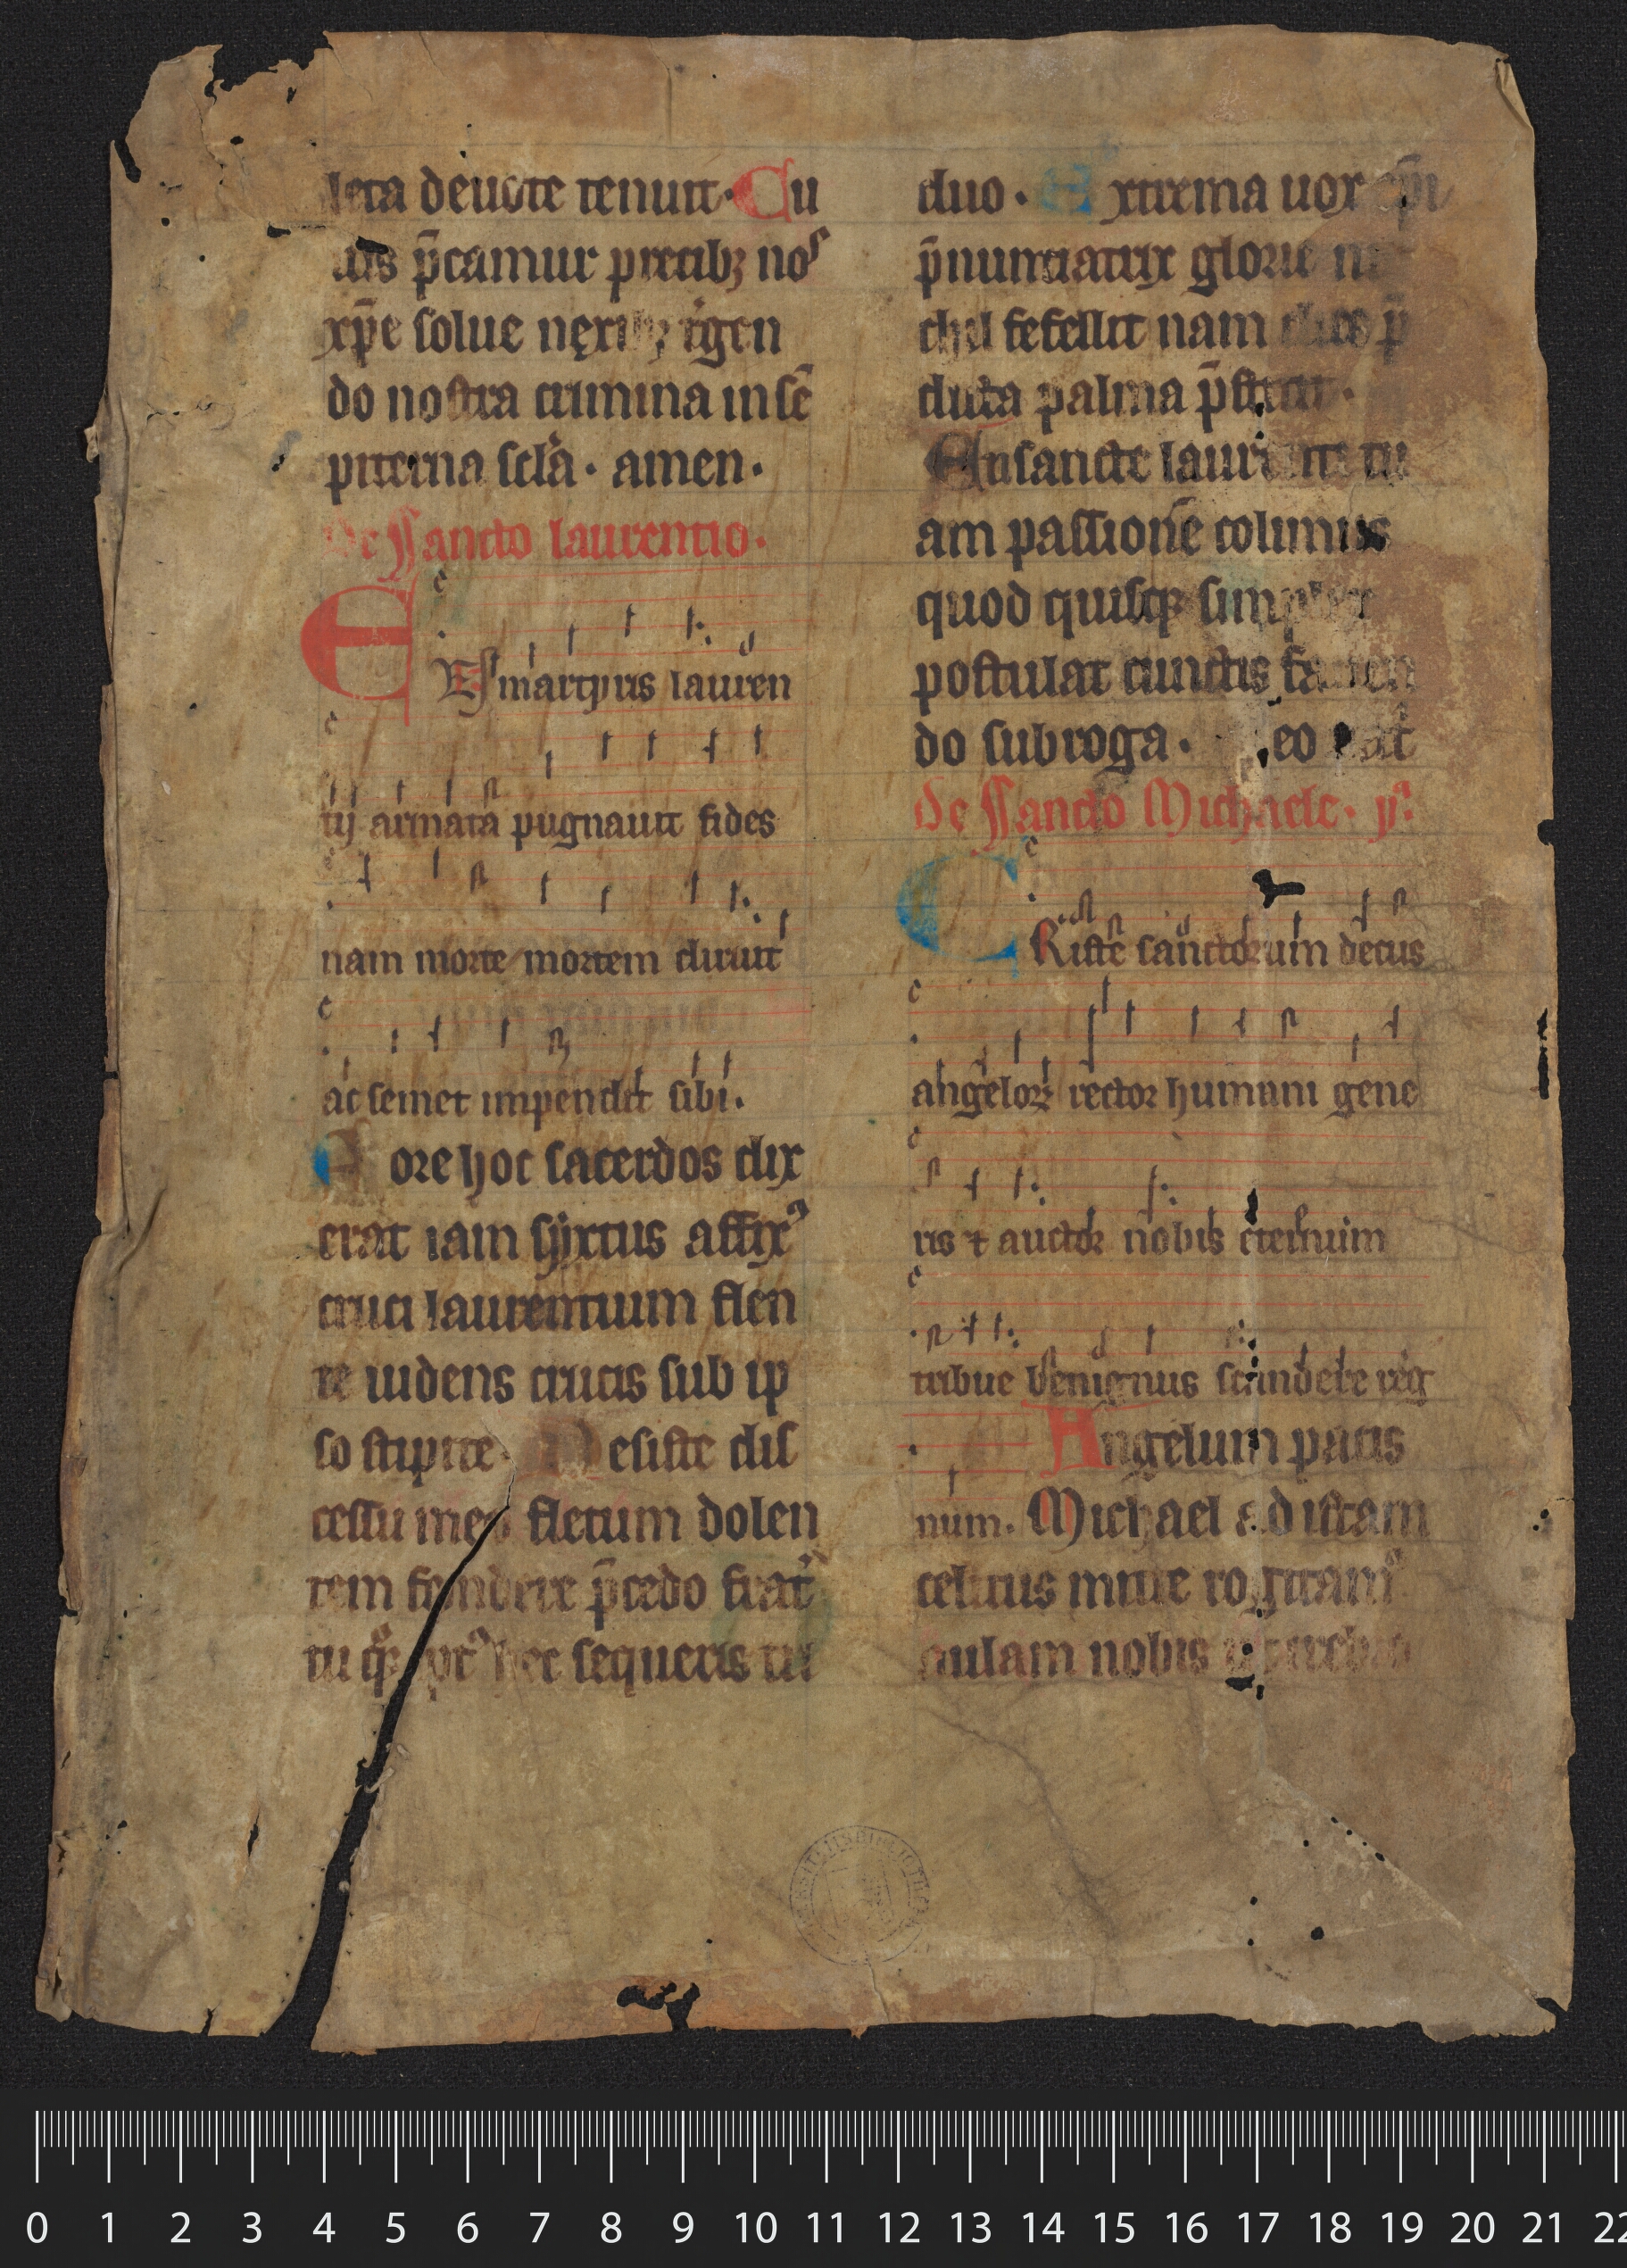 leta deuote tenuit. Cu
ius p̄camur precibꝫ nos
xp̄e solue nexibꝫ igen
do nostra crimina in sē
piterna scl̄a. amen.
De Sancto laurentio.
E
En martyris lauren
tij armata pugnauit fides
nam morte mortem diruit
ac semet impendit sibi.
Fore hoc sacerdos dix
erat iam syxtus affixꝰ
cruci laurentium flen
te uidens crucis sub ip
so stipite. Desiste dis
cessu meo fletum dolen
tem fundere p̄cedo frat̄
tu hec sequeris tri
duo. Extrema uox ep̄i
p̄nunciatrix glorie ni
chil fefellit nam dies p̄
dicta palma p̄stitit.
En sancte laurenti tu
am passionē colimus
quod quisqꝫ simpliciter
postulat cunctis fauen
do subroga. Deo pat̄
De Sancto Michaele. yͫ.
CRiste sanctorum decus
angeloꝝ rector humani gene
ris ⁊ auctor nobis eternum
tribue benignus scandere reg
Angelum pacis
num. Michael ad istam
celitus mitte rogitamꝰ
aulam nobis